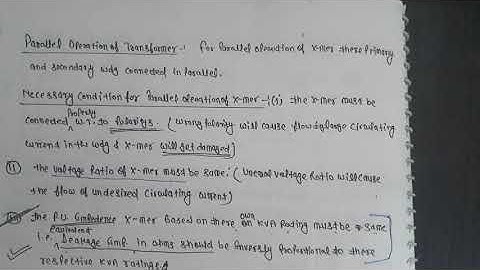 Parallel Operation of Transformer:- for Parallel operation of x-mer there Primary
and secondary wdg connected in Parallel.
Necessary condition for Parallel operation of x-mer :- (i) the x-mer must be
connected Properly w.r. to Polarity. (wrong Polarity will cause flow of large Circulating
current in the wdg & x-mer will get damaged)
(ii) the voltage Ratio of x-mer must be same. (Unequal voltage Ratio will cause
the flow of undesired Circulating current)
the P.U impedence x-mer based on there own KVA Rating must be same
i.e. equivalent Leakage imp. in ohms should be inversly Proportional to there
respective KVA ratings.